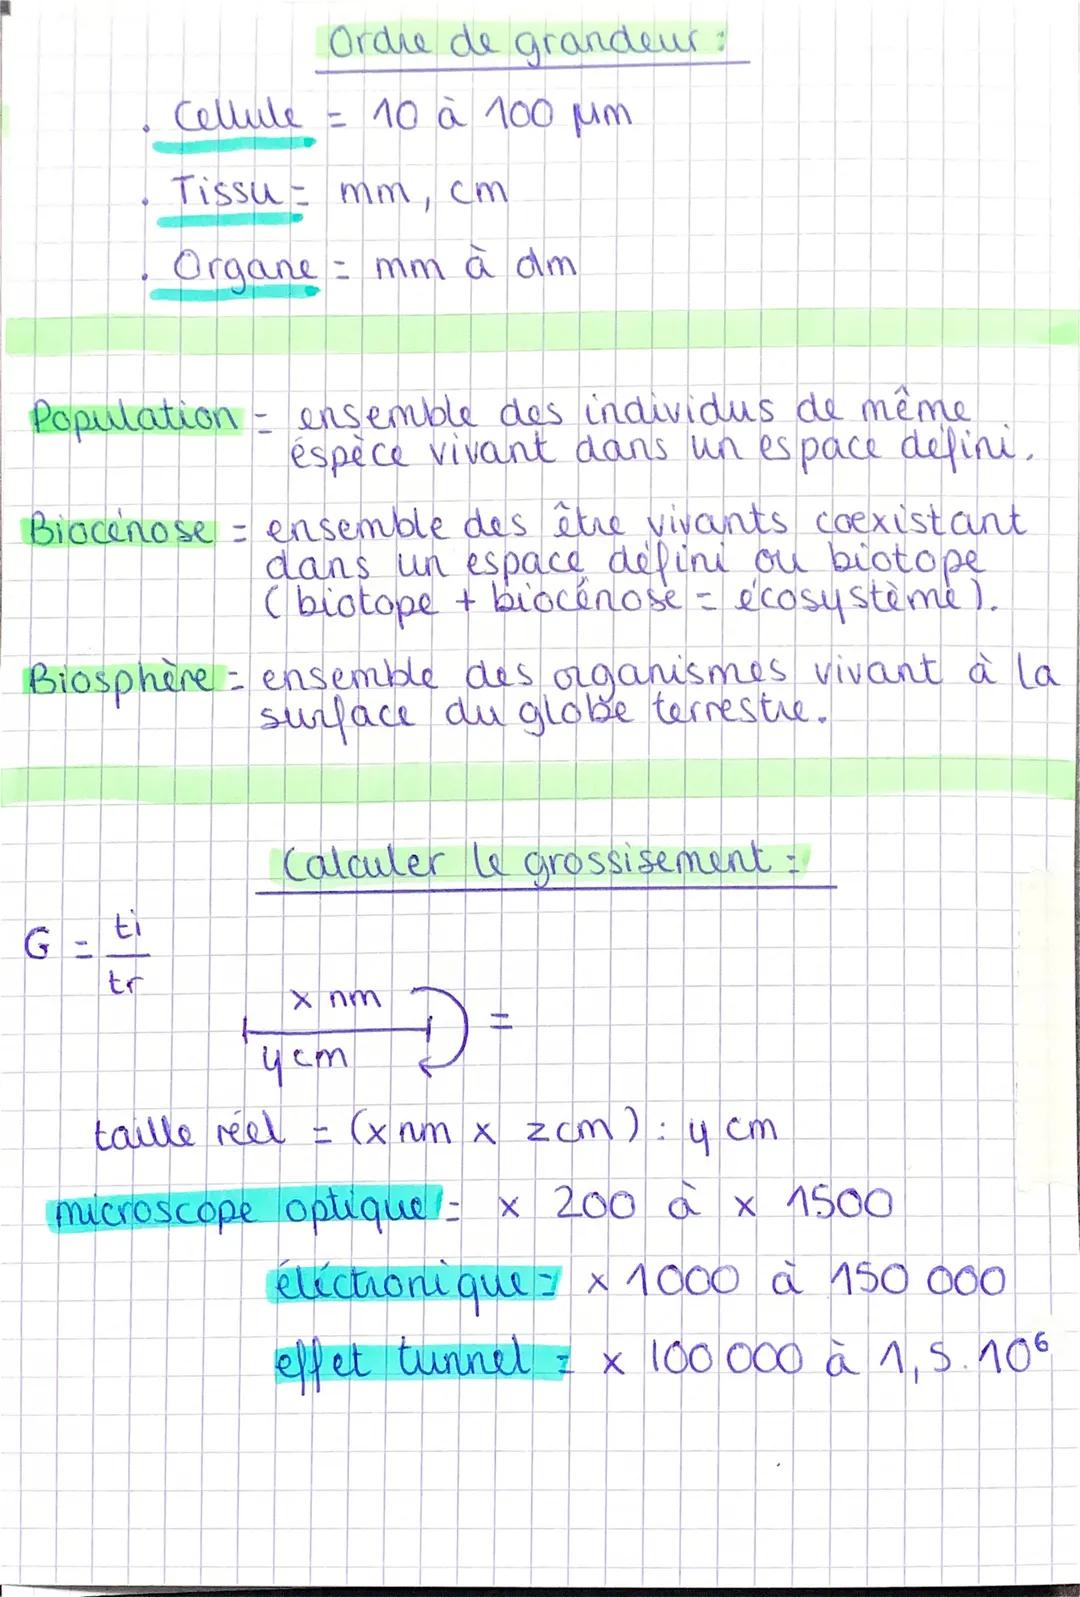 Ordre de grandeur :
. Cellule = 10 à 100 µm
. Tissu = mm, cm
. Organe = mm à dm
Population = ensemble des individus de même
éspèce vivant dans un espace défini.
Biocénose = ensemble des être vivants coexistant
dans un espace défini ou biotope
(biotope + biocénose = écosystème).
Biosphère = ensemble des organismes vivant à la
surface du globe terrestre.
Calculer le grossisement :
G = ti
tr
x nm
=
y cm
taille réel = (x nm x z cm) : y cm
microscope optique = x 200 à x 1500
éléctronique = x 1000 à 150 000
effet tunnel = x 100 000 à 1,5.10⁶